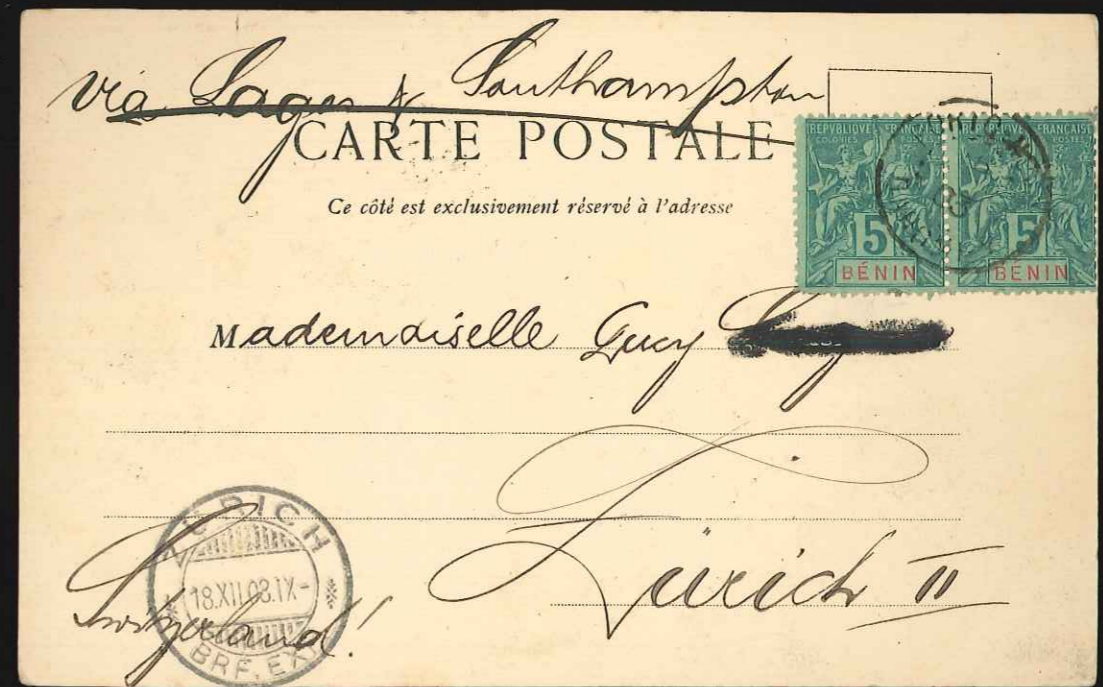 via Lagos & Southampton
CARTE POSTALE
Ce côté est exclusivement réservé à l'adresse
REPUBLIQUE FRANÇAISE
COLONIES POSTES
5
BÉNIN
REPUBLIQUE FRANÇAISE
COLONIES POSTES
5
BÉNIN
03
Mademoiselle Lucy
Zürich II
Switzerland!
ZÜRICH
18.XII.03.IX-
BRF. EXP.